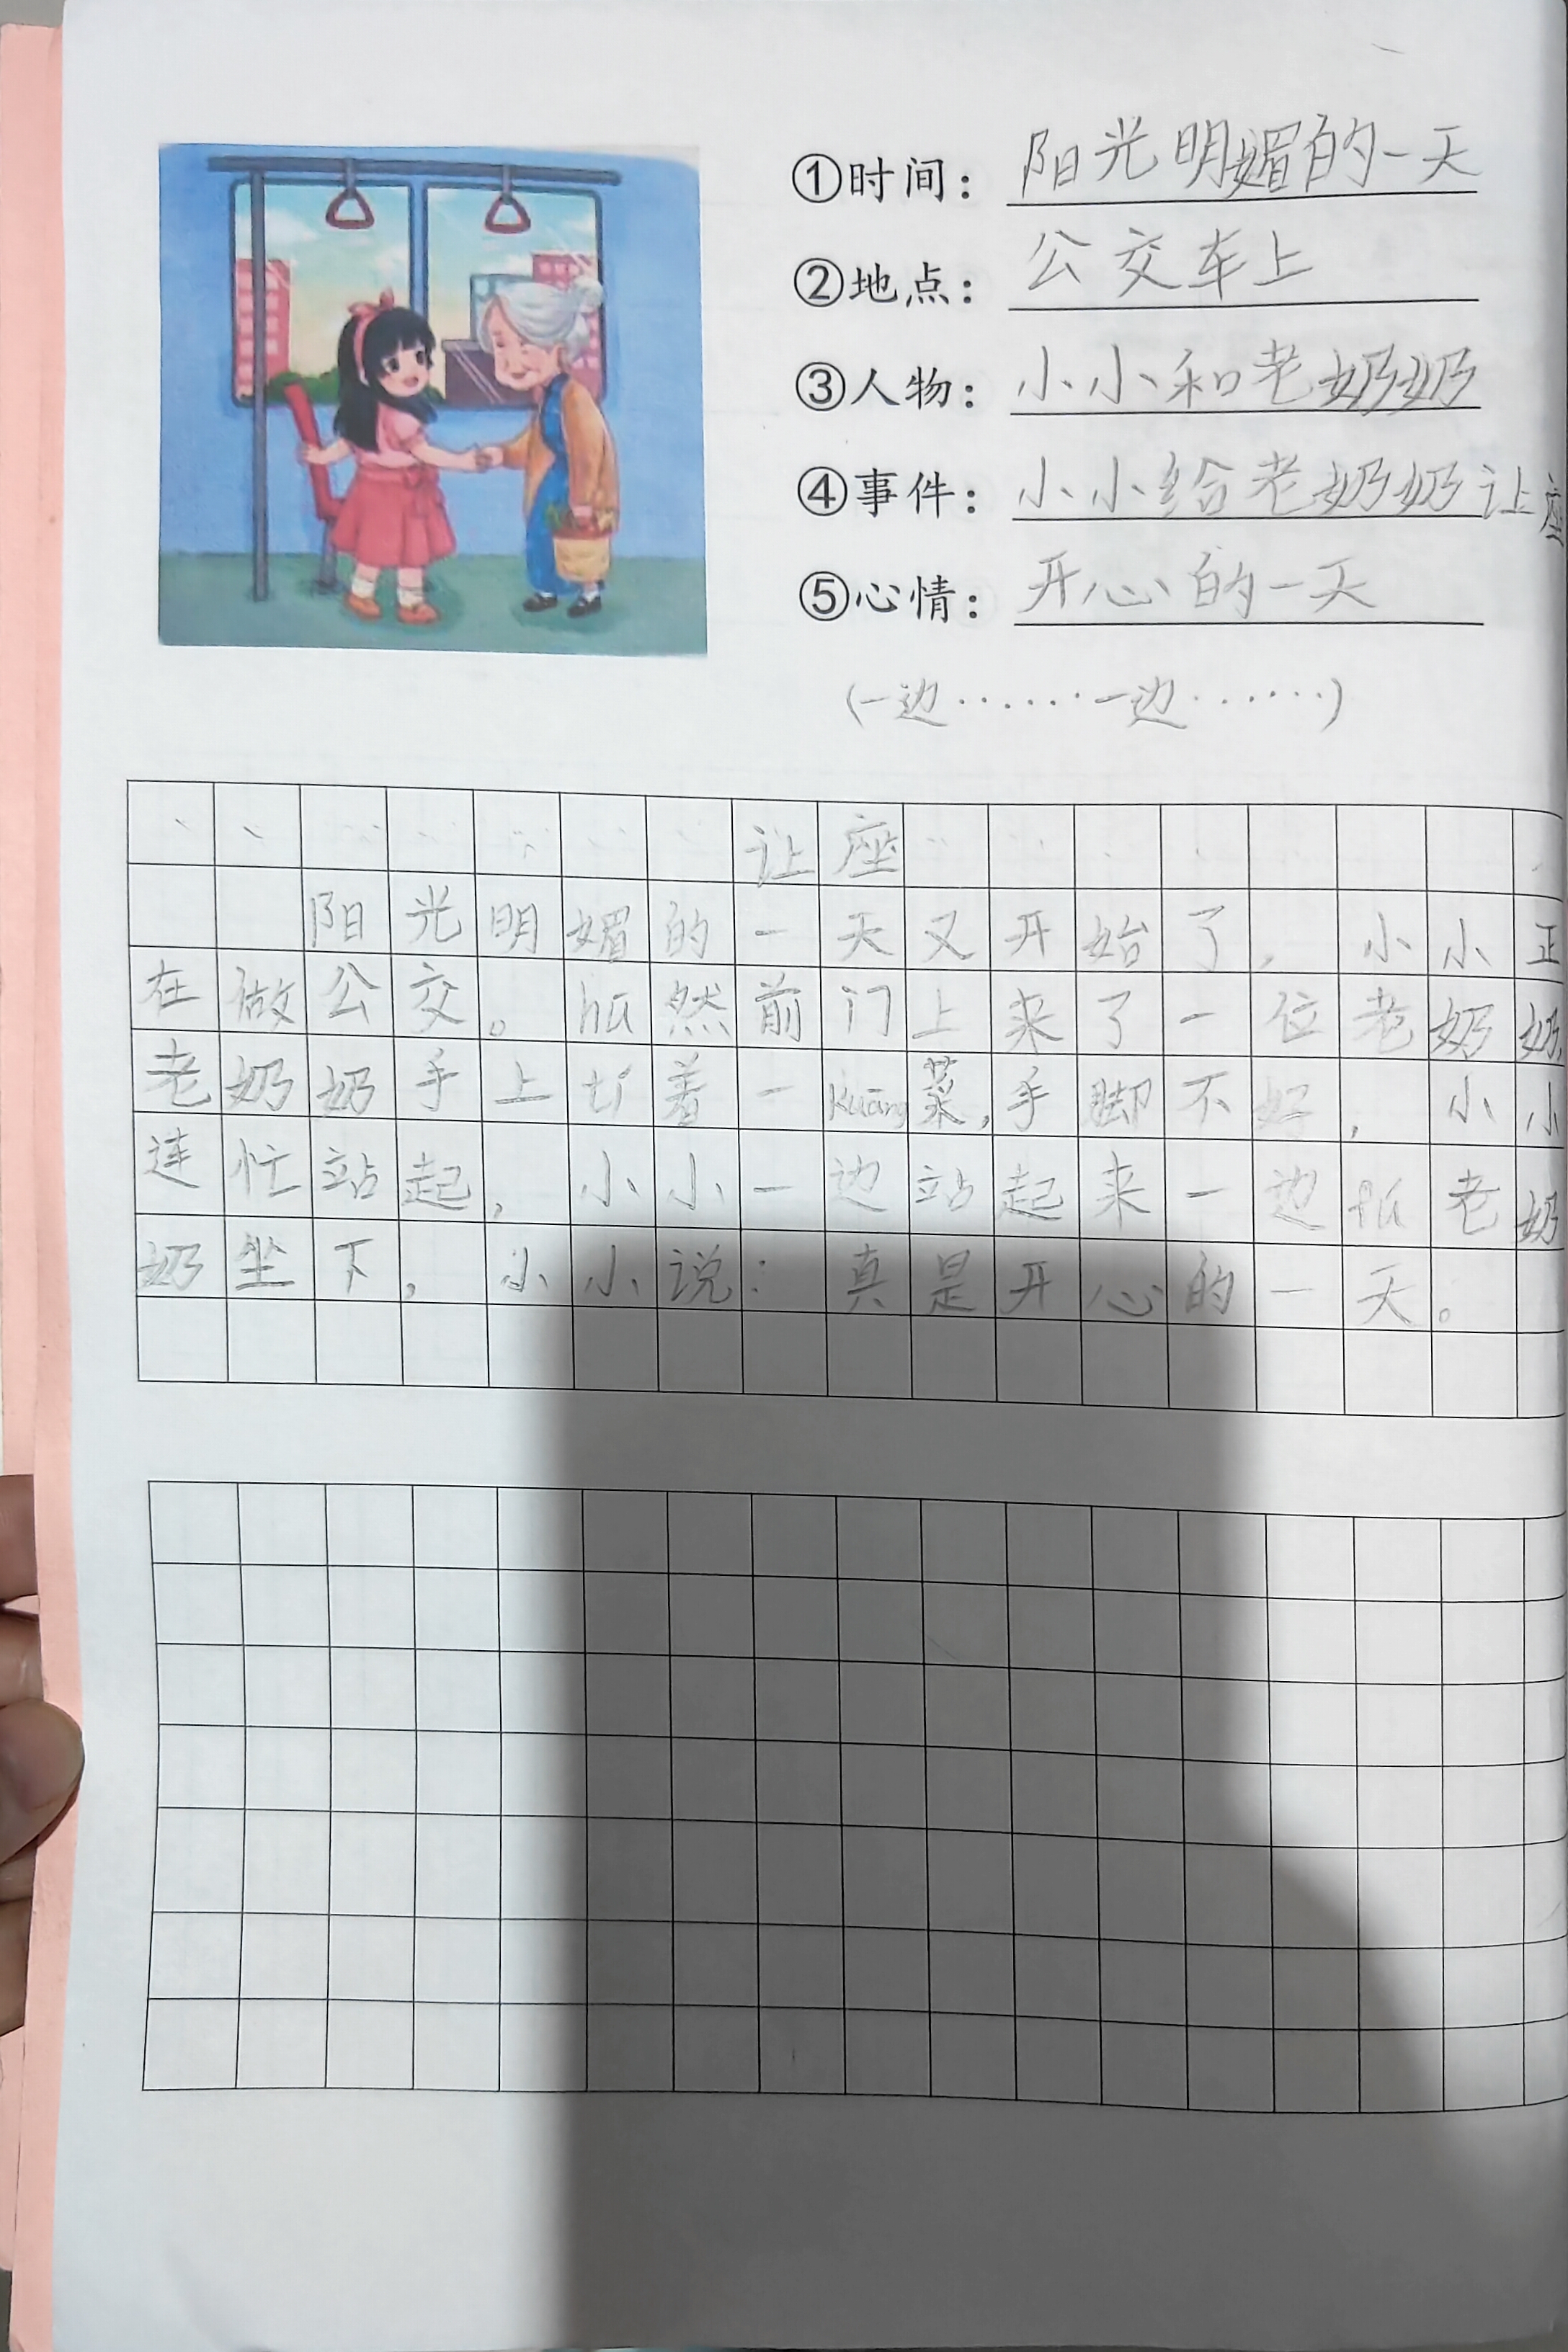 ①时间：阳光明媚的一天
②地点：公交车上
③人物：小小和老奶奶
④事件：小小给老奶奶让座
⑤心情：开心的一天
(一边……一边……)
让座
阳光明媚的一天又开始了，小小正
在做公交。hū然前门上来了一位老奶奶，
老奶奶手上tí着一kuāng菜，手脚不好，小小
连忙站起，小小一边站起来一边fú老奶
奶坐下，小小说：真是开心的一天。